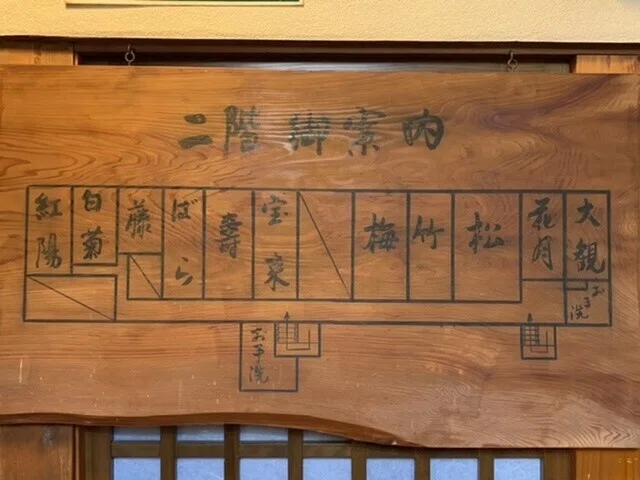 二階御案内
紅陽
白菊
藤
ばら
寿
宝来
梅
竹
松
花月
大観
お手洗
お手洗